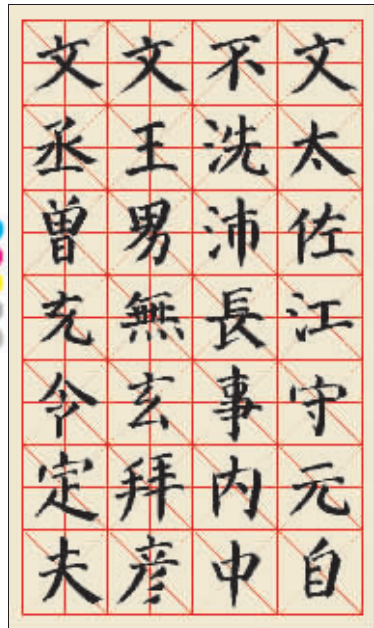 文太佐江守元自
不洗沛長事内中
文王男無玄拜彦
文丞曾充令定夫